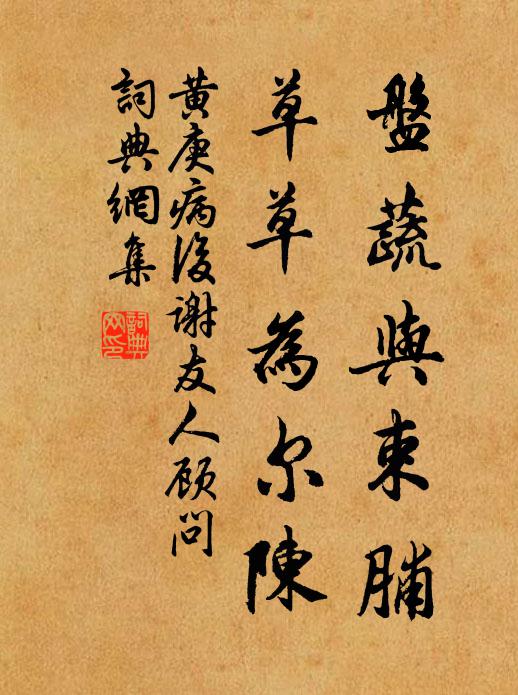 盤蔬與束脯
草草為尔陳
黄庚病後謝友人顧問
詞典網集
詞典網印